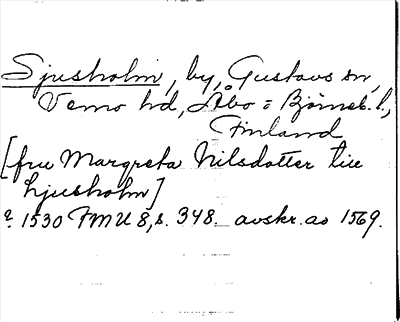 Sjusholm, by, Gustavs sn,
Vemo hd, Åbo = Björneb. l.,
Finland
[fru Margreta Nilsdotter tiil
hjusholm]
1530 FMU 8, s. 348 avskr. ao 1569.